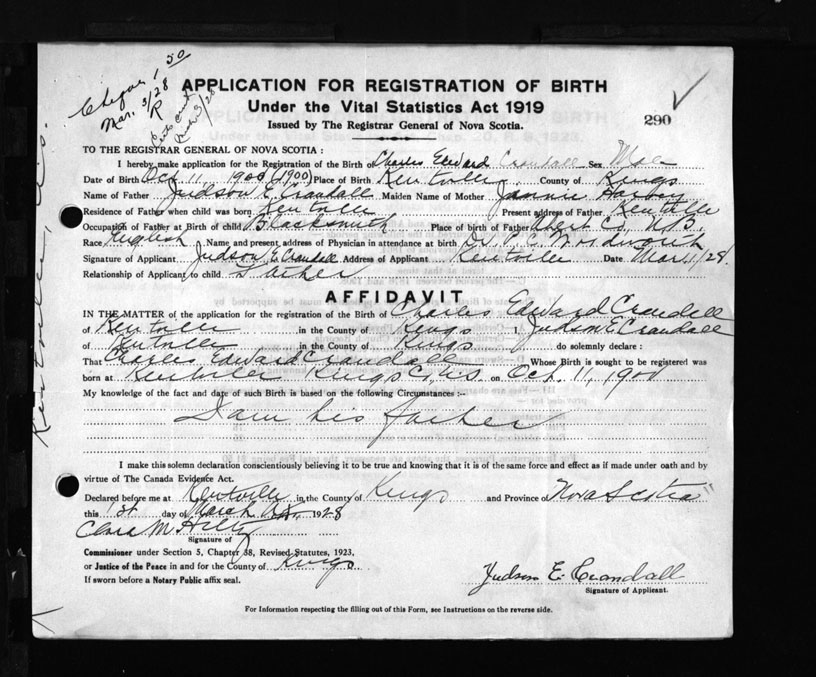 Cheque 1.50
Mar. 3/28
R
APPLICATION FOR REGISTRATION OF BIRTH
Under the Vital Statistics Act 1919
Issued by The Registrar General of Nova Scotia.
290
TO THE REGISTRAR GENERAL OF NOVA SCOTIA:
I hereby make application for the Registration of the Birth of Charles Edward Crandall Sex Male
Date of Birth Oct 11 1900 (1900) Place of Birth Kentville County of Kings
Name of Father Judson E. Crandall Maiden Name of Mother Jannie
Residence of Father when child was born Kentville Present address of Father Kentville
Occupation of Father at Birth of child Blacksmith Place of birth of Father Albert Co, N.B.
Race English Name and present address of Physician in attendance at birth Dr. Woodworth
Signature of Applicant Judson E. Crandall Address of Applicant Kentville Date Mar. 1/28
Relationship of Applicant to child Father
AFFIDAVIT
IN THE MATTER of the application for the registration of the Birth of Charles Edward Crandall
of Kentville in the County of Kings I, Judson E Crandall
of Kentville in the County of Kings do solemnly declare:
That Charles Edward Crandall Whose Birth is sought to be registered was
born at Kentville Kings Co, N.S. on Oct. 11, 1900
My knowledge of the fact and date of such Birth is based on the following Circumstances :-
I am his father
I make this solemn declaration conscientiously believing it to be true and knowing that it is of the same force and effect as if made under oath and by
virtue of The Canada Evidence Act.
Declared before me at Kentville in the County of Kings and Province of Nova Scotia
this 1st day of March 1928
Signature of
Commissioner under Section 5, Chapter 38, Revised Statutes, 1923.
or Justice of the Peace in and for the County of Kings
If sworn before a Notary Public affix seal.
Judson E. Crandall
Signature of Applicant.
For Information respecting the filling out of this Form, see Instructions on the reverse side.